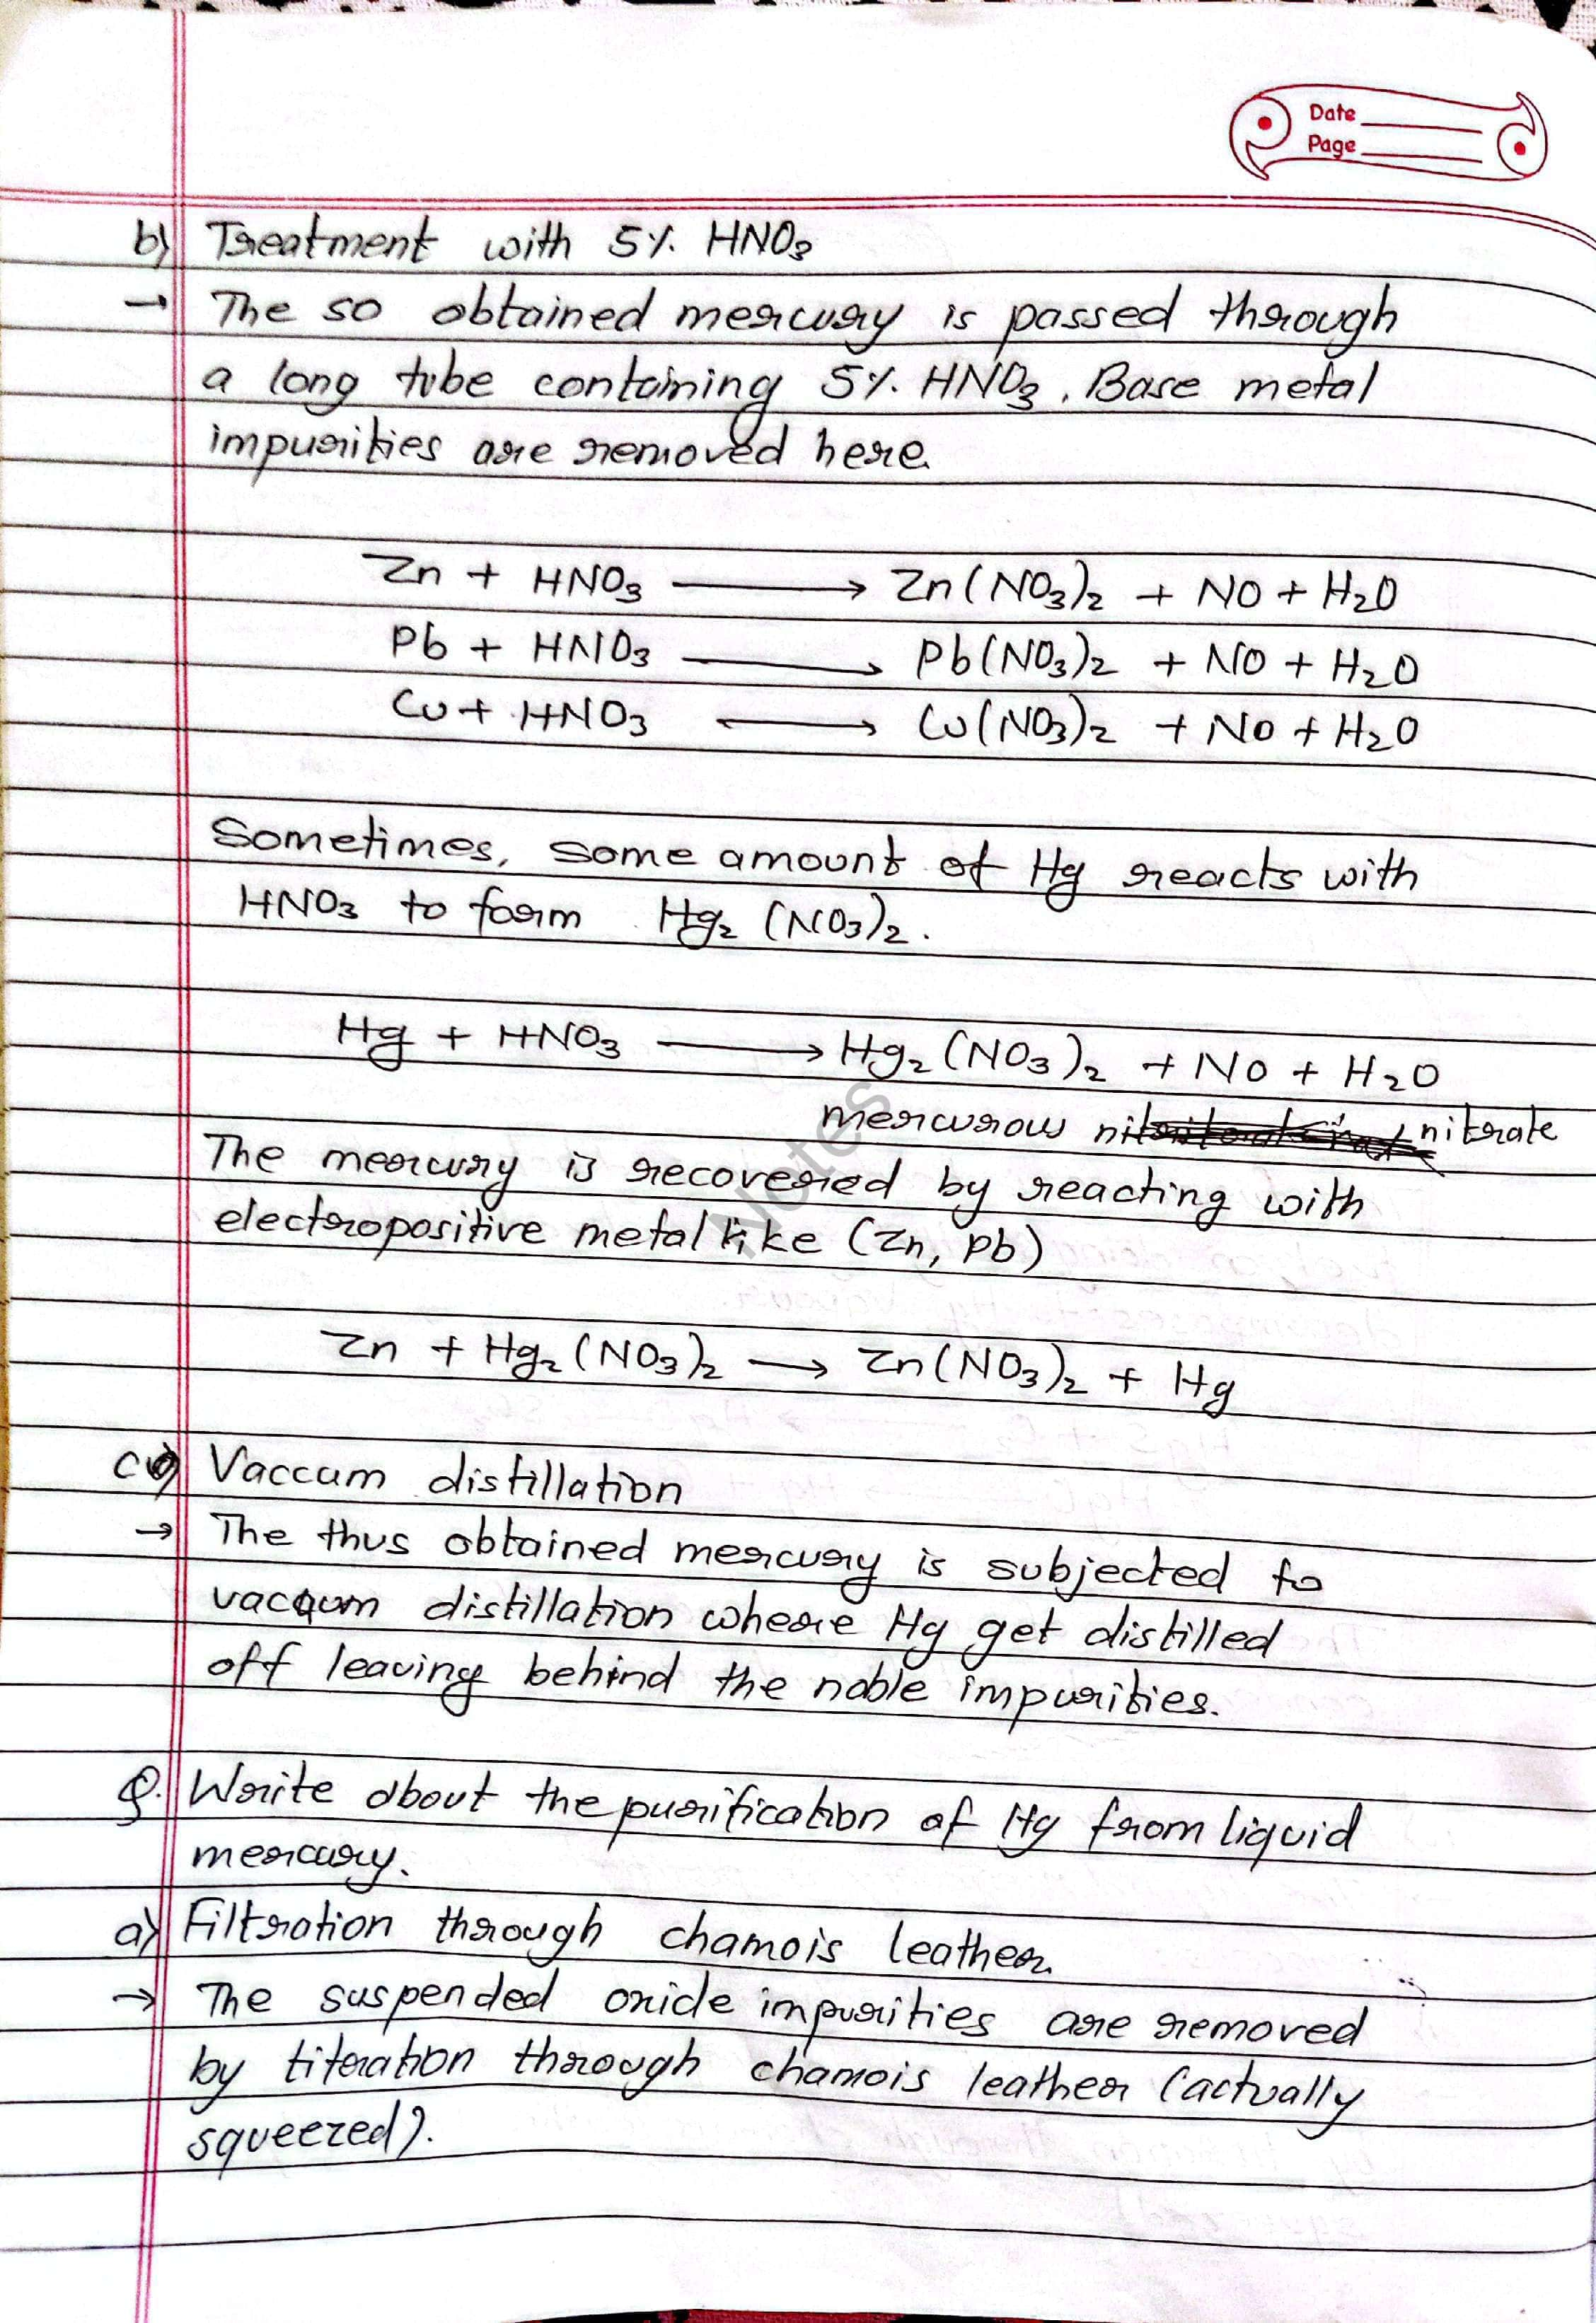 Date
Page
b) Treatment with 5% HNO₃
→ The so obtained mercury is passed through
a long tube containing 5% HNO₃. Base metal
impurities are removed here.
Zn + HNO₃ ⟶ Zn(NO₃)₂ + NO + H₂O
Pb + HNO₃ ⟶ Pb(NO₃)₂ + NO + H₂O
Cu + HNO₃ ⟶ Cu(NO₃)₂ + NO + H₂O
Sometimes, some amount of Hg reacts with
HNO₃ to form Hg₂(NO₃)₂.
Hg + HNO₃ ⟶ Hg₂(NO₃)₂ + NO + H₂O
mercurous nitrate
The mercury is recovered by reacting with
electropositive metal like (Zn, Pb)
Notes
Zn + Hg₂(NO₃)₂ ⟶ Zn(NO₃)₂ + Hg
c) Vaccum distillation
→ The thus obtained mercury is subjected to
vacuum distillation where Hg get distilled
off leaving behind the noble impurities.
Q. Write about the purification of Hg from liquid
mercury.
a) Filtration through chamois leather.
→ The suspended oxide impurities are removed
by titeration through chamois leather (actually
squeezed).